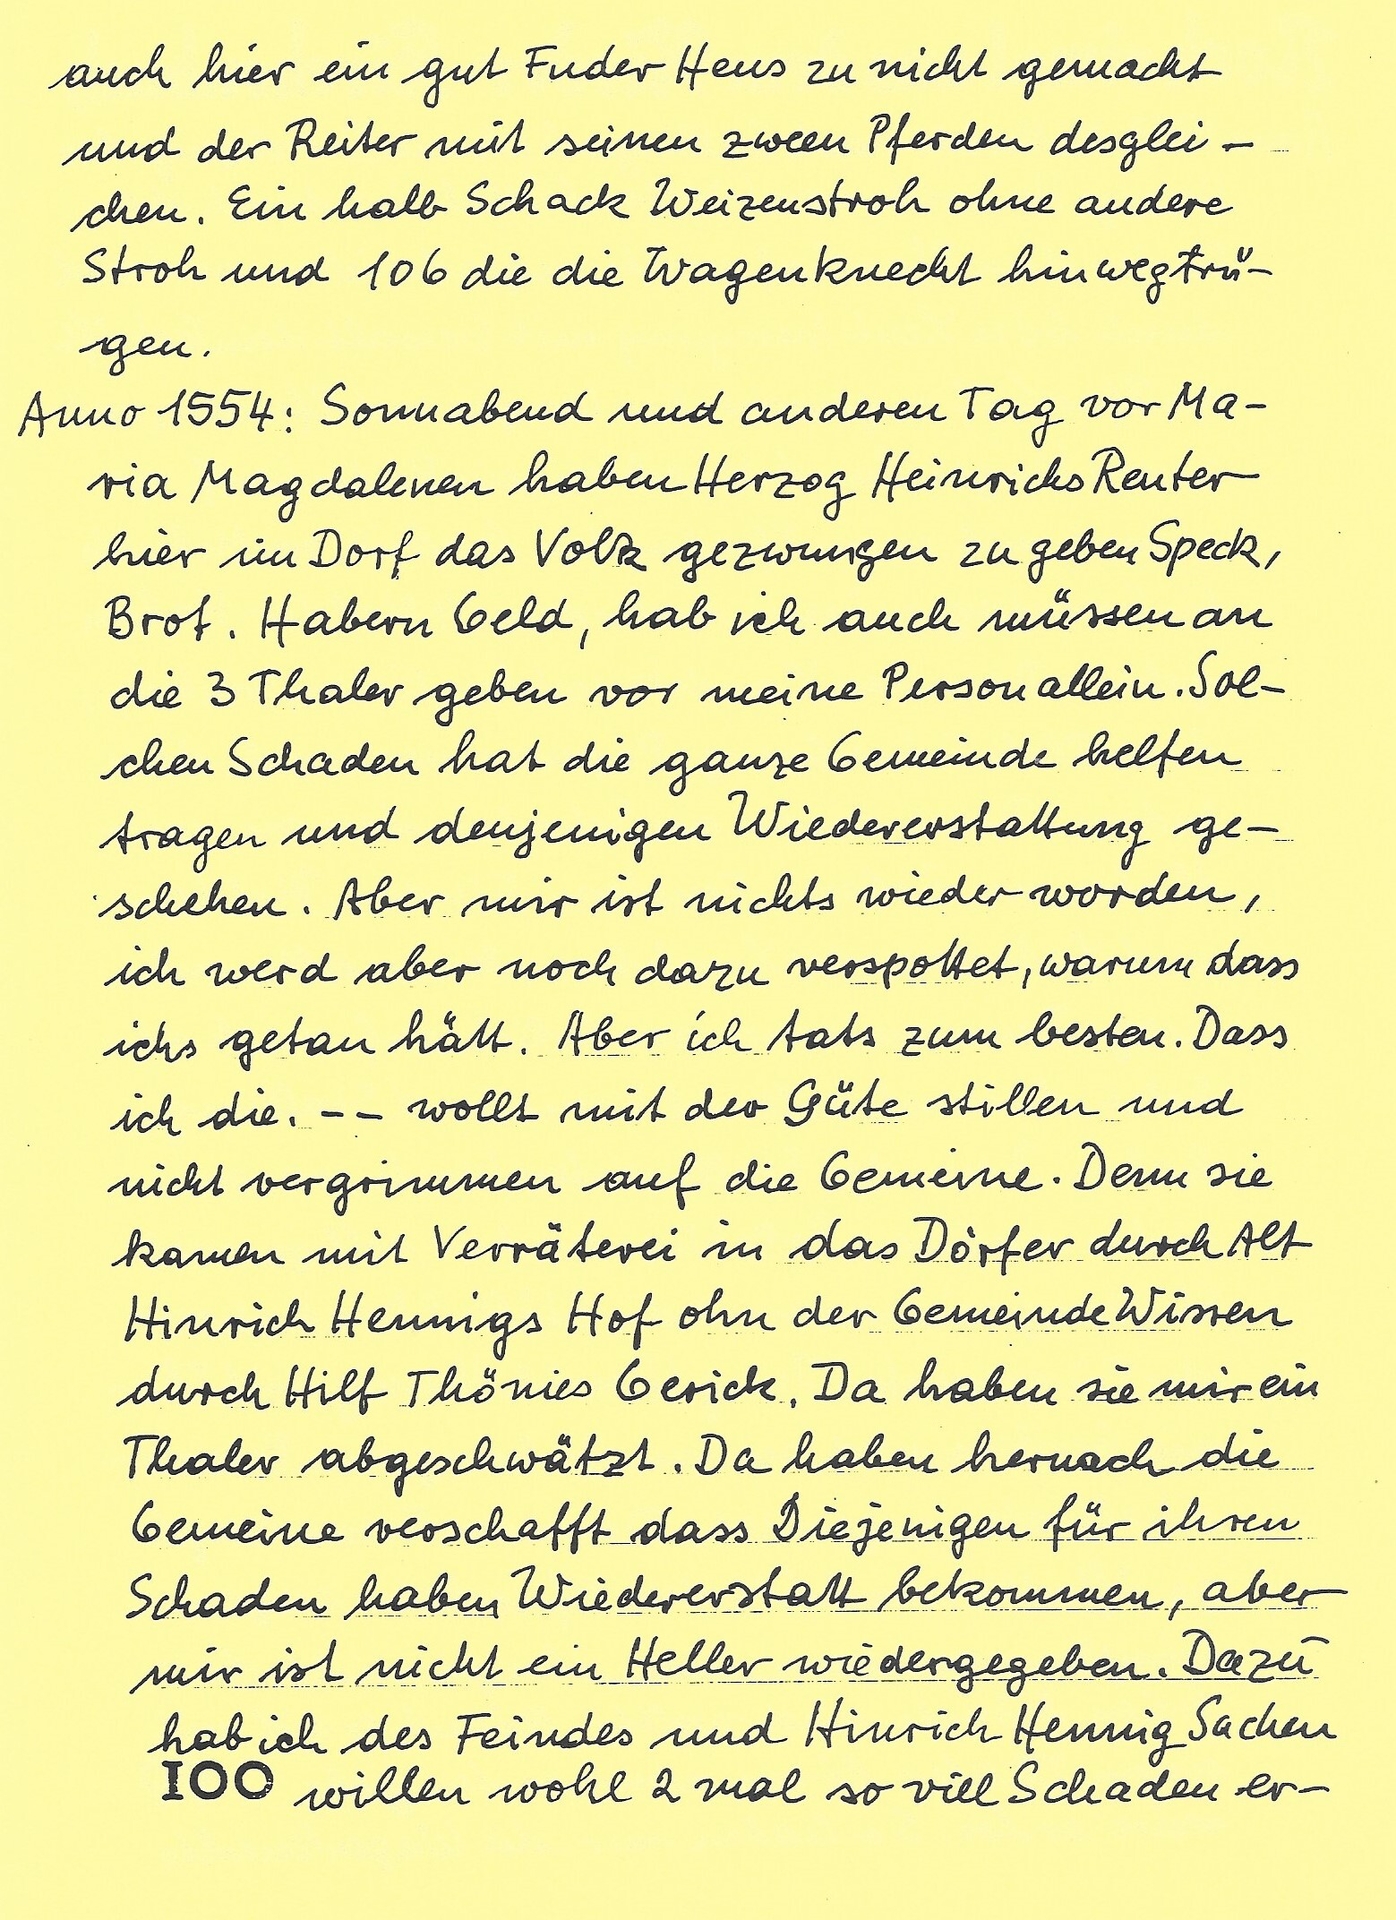 auch hier ein gut Fuder Heus zu nicht gemacht
und der Reiter mit seinen zween Pferden desglei-
chen. Ein halb Schack Weizenstroh ohne andere
Stroh und 106 die die Wagenknecht hinwegtrü-
gen.
Anno 1554: Sonnabend und anderen Tag vor Ma-
ria Magdalenen haben Herzog Heinrichs Reuter
hier im Dorf das Volk gezwungen zu geben Speck,
Brot. Habern Geld, hab ich auch müssen an
die 3 Thaler geben vor meine Person allein. Sol-
chen Schaden hat die ganze Gemeinde helfen
tragen und denjenigen Wiedererstattung ge-
schehen. Aber mir ist nichts wieder worden,
ich werd aber noch dazu verspottet, warum dass
ichs getan hätt. Aber ich tats zum besten. Dass
ich die. -- wollt mit der Güte stillen und
nicht vergrimmen auf die Gemeine. Denn sie
kamen mit Verräterei in das Dörfer durch Alt
Hinrich Hennigs Hof ohn der Gemeinde Wissen
durch Hilf Thönies Gerick. Da haben sie mir ein
Thaler abgeschwätzt. Da haben hernach die
Gemeine verschafft dass Diejenigen für ihren
Schaden haben Wiedererstatt bekommen, aber
mir ist nicht ein Heller wiedergegeben. Dazu
hab ich des Feindes und Hinrich Hennig Sachen
100 willen wohl 2 mal so viel Schaden er-